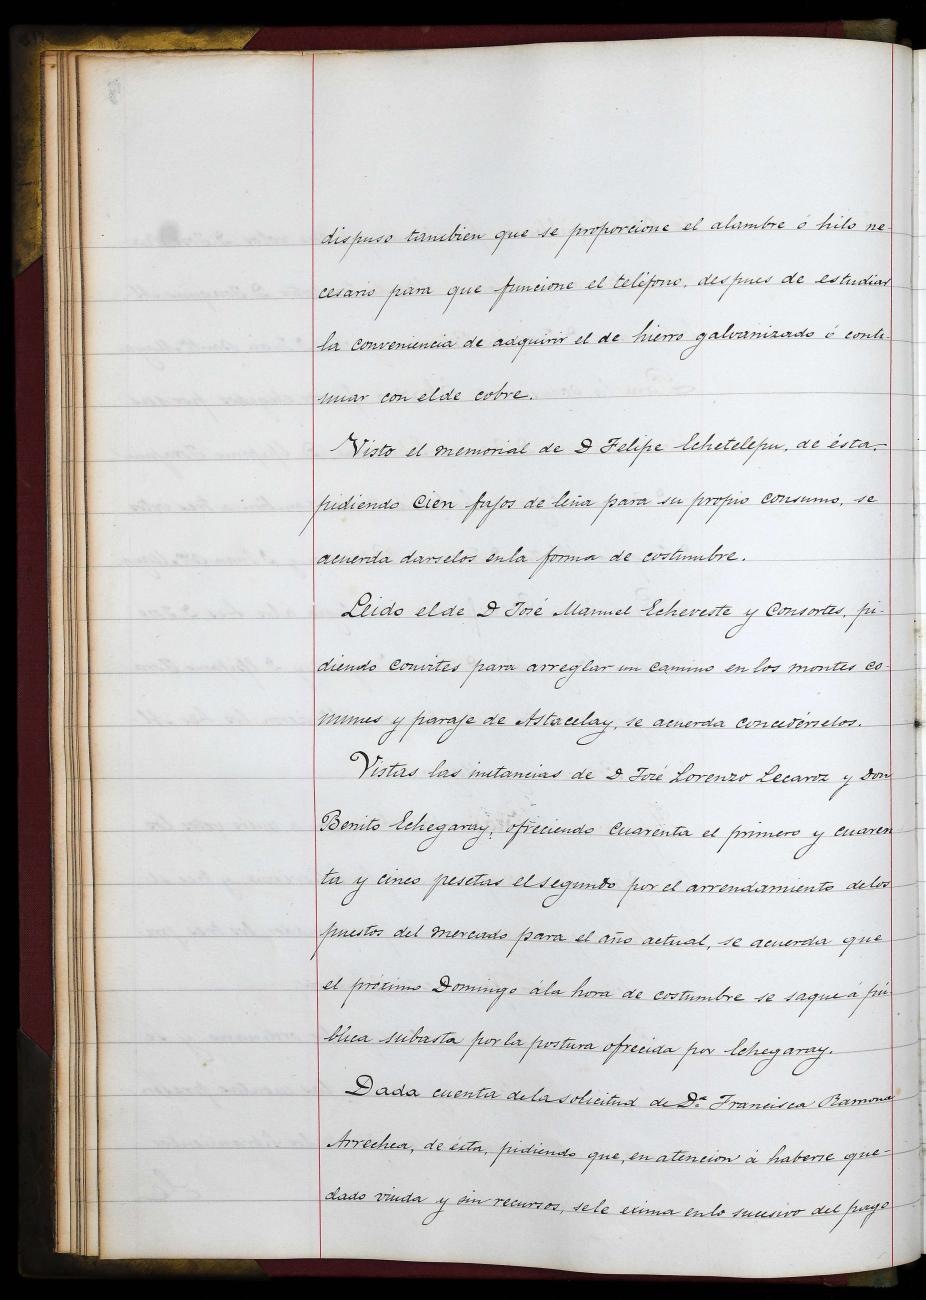 dispuso tambien que se proporcione el alambre ó hilo ne
cesario para que funcione el teléfono, despues de estudiar
la conveniencia de adquirir el de hierro galvanizado ó conti-
nuar con el de cobre.
Visto el memorial de D Felipe Echetelepu, de ésta,
pidiendo cien fajos de leña para su propio consumo, se
acuerda darselos en la forma de costumbre.
Leido el de D José Manuel Echeveste y Consortes, pi-
diendo convites para arreglar un camino en los montes co-
munes y paraje de Astacelay, se acuerda concedérselos.
Vistas las instancias de D José Lorenzo Lecaroz y Don
Benito Echegaray, ofreciendo cuarenta el primero y cuaren
ta y cinco pesetas el segundo por el arrendamiento de los
puestos del mercado para el año actual, se acuerda que
el próximo Domingo á la hora de costumbre se saque á pú-
blica subasta por la postura ofrecida por Echegaray.
Dada cuenta de la solicitud de D.ª Francisca Ramona
Arrechea, de ésta, pidiendo que, en atencion á haberse que-
dado viuda y sin recursos, se le exima en lo sucesivo del pago